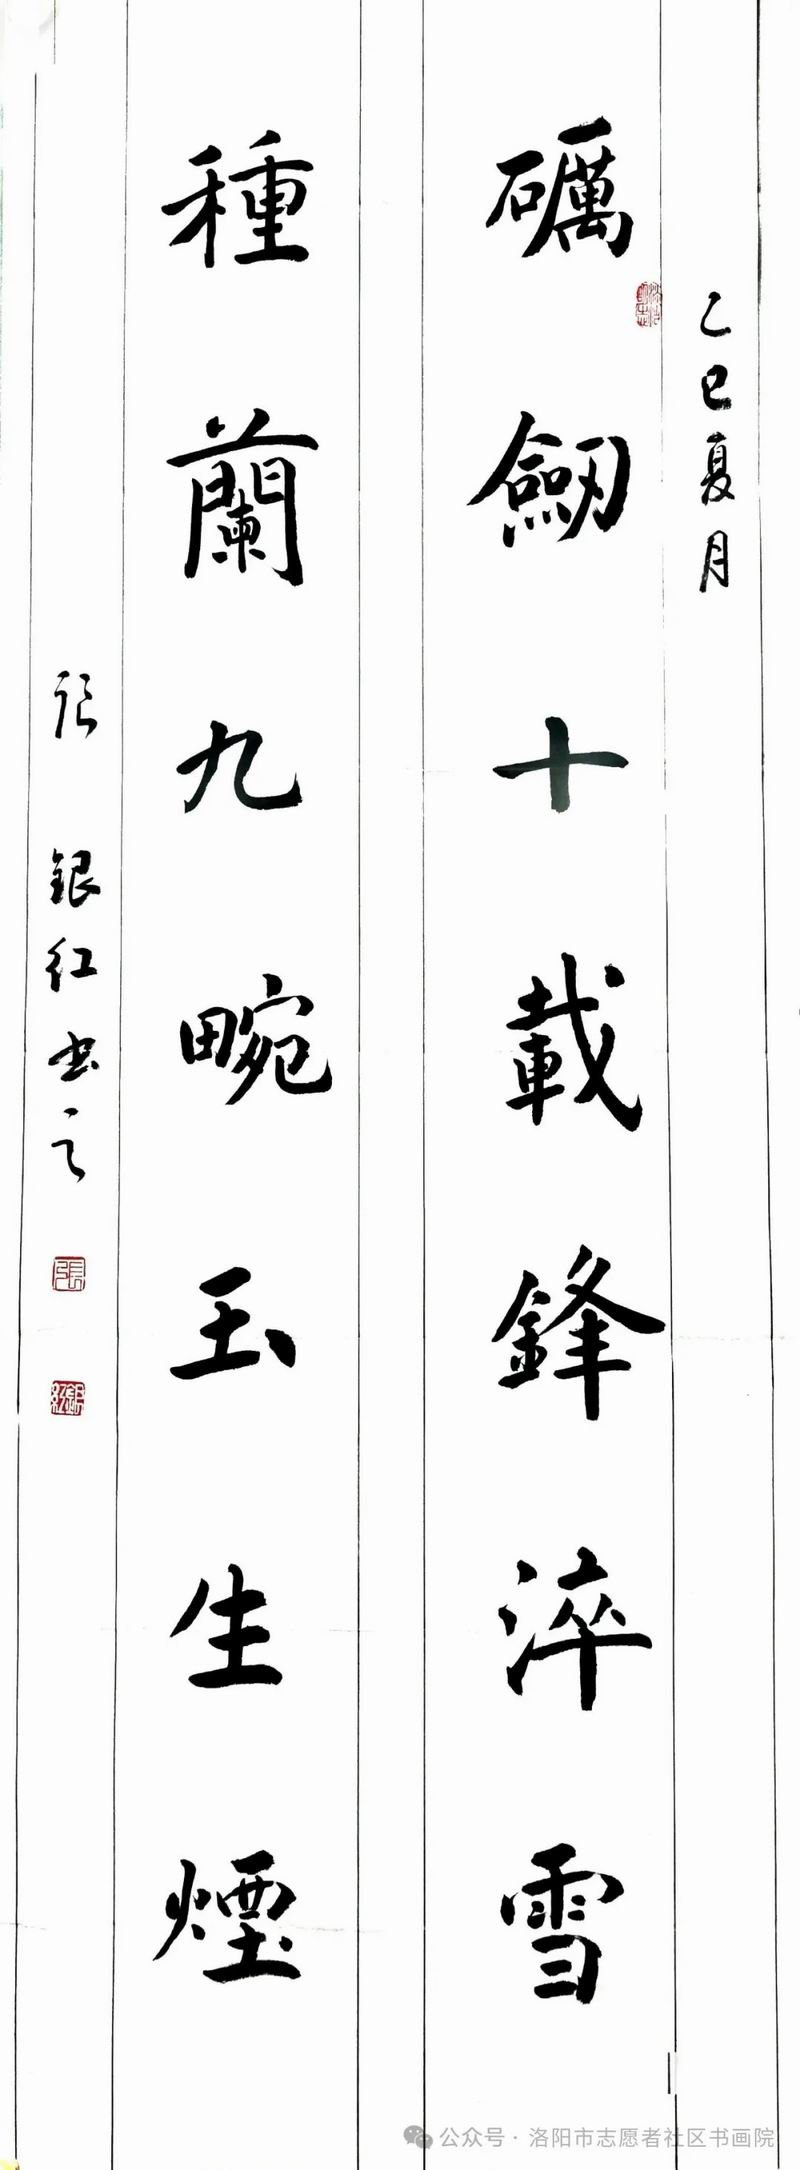 乙巳夏月
礪劒十載鋒淬雪
種蘭九畹玉生煙
張銀红书之
張
銀紅
公众号·洛阳市志愿者社区书画院